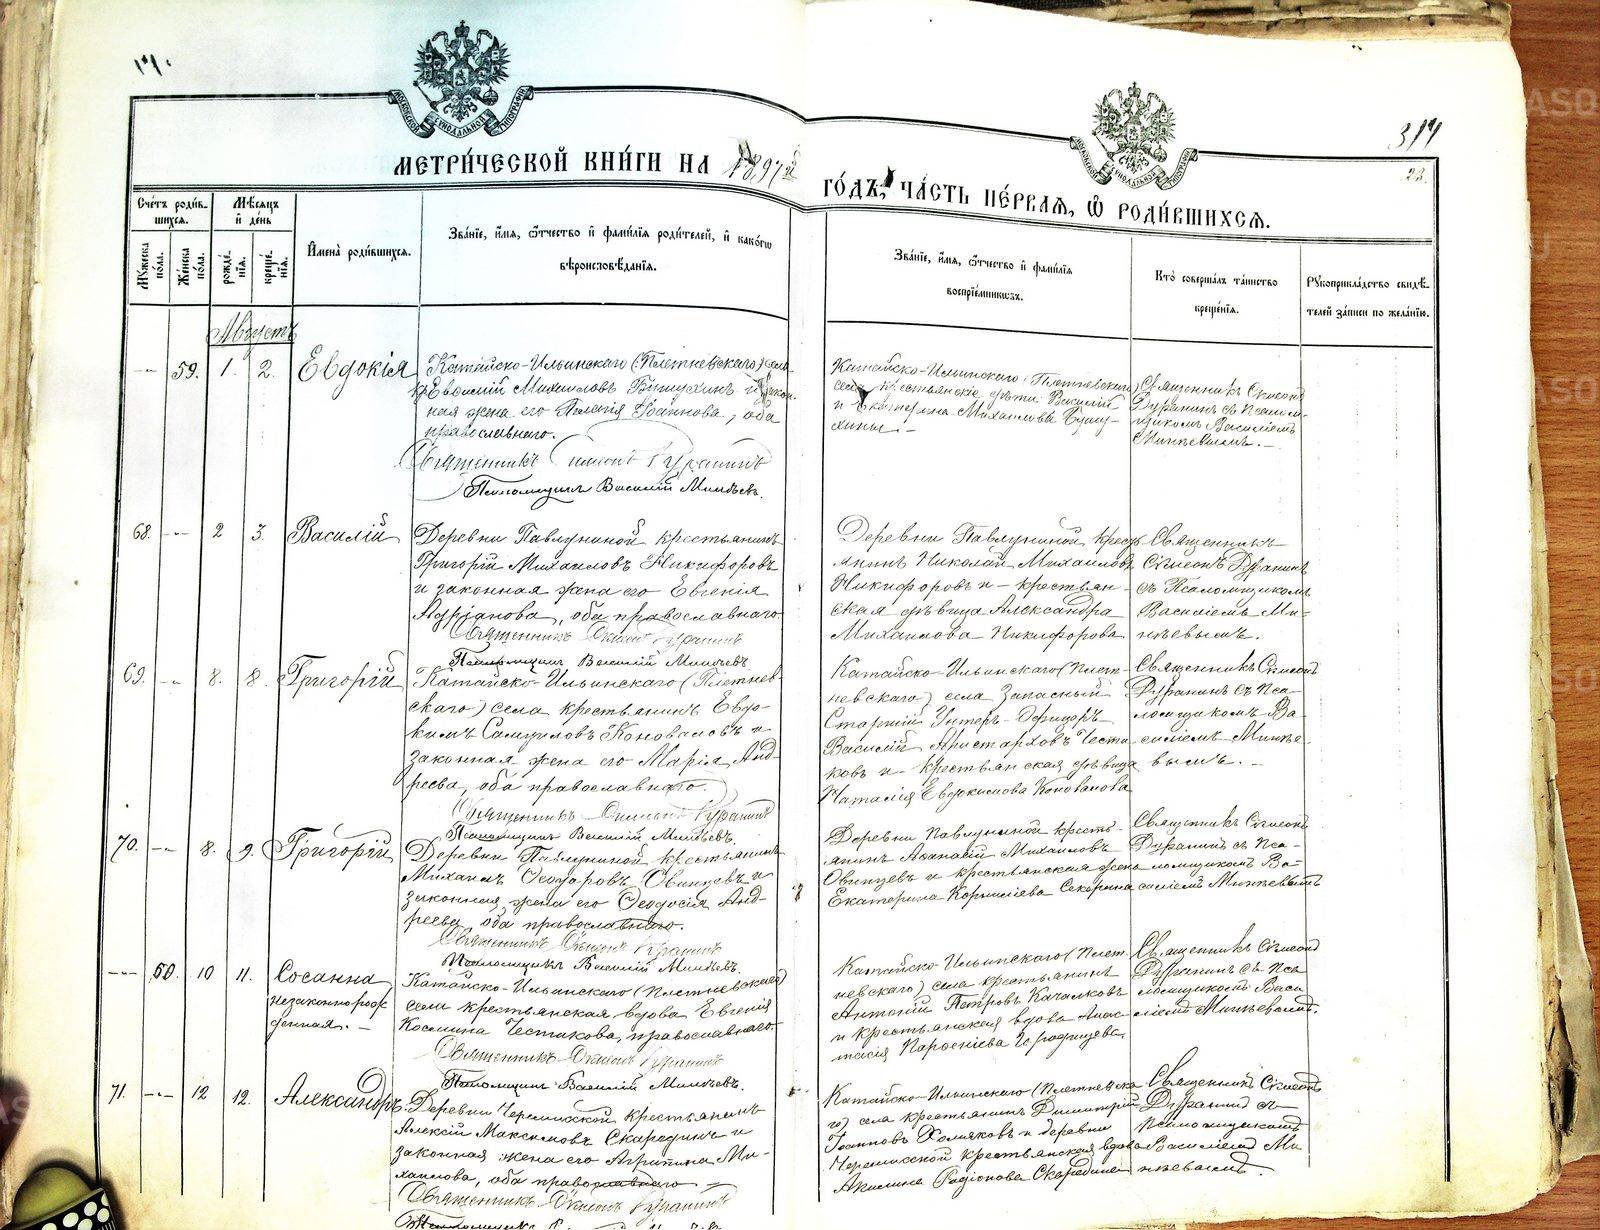 МОСКОВСКОЙ СѴНОДАЛЬНОЙ ТИПОГРАФІИ
МОСКОВСКОЙ СѴНОДАЛЬНОЙ ТИПОГРАФІИ
317
23.
МЕТРИ́ЧЕСКОЙ КНИ́ГИ НА 1897й
ГО́ДЪ, ЧА́СТЬ ПЕ́РВАЯ, Ѡ РОДИ́ВШИХСЯ.
Сче́тъ роди́в-
шихся.
Мѣ́сяцъ
и де́нь
Му́жеска по́ла.
Же́нска по́ла.
рожде́нія.
креще́нія.
Имена̀ роди́вшихся.
Зва́ніе, и́мя, ѻ́тчество и фами́лія роди́телей, и како́гѡ
вѣроисповѣ́данія.
Зва́ніе, и́мя, ѻ́тчество и фами́лія
воспріе́мникѡвъ.
Кто̀ соверша́лъ та́инство
креще́нія.
Рукоприкла́дство свидѣ́-
телей за́писи по жела́нію.
Августъ
59. 1. 2. Евдокія
Катайско-Ильинскаго (Плетневскаго) села
кр. Евсимій Михаиловъ Бушухинъ и закон-
ная жена его Пелагія Іоаннова, оба
православнаго.
Священникъ Симеонъ Дуранинъ
Псаломщикъ Василій Минѣевъ.
Катайско-Ильинскаго (Плетневскаго)
села крестьянскіе дѣти Василій
и Екатерина Михаиловы Бушу-
хины.
Священникъ Симеонъ
Дуранинъ съ Псалом-
щикомъ Василіемъ
Минѣевымъ.
68. 2 3. Василій
Деревни Павлуниной крестьянинъ
Григорій Михаиловъ Никифоровъ
и законная жена его Евгенія
Адріанова, оба православнаго.
Священникъ Симеонъ Дуранинъ
Псаломщикъ Василій Минѣевъ.
Деревни Павлуниной кресть-
янинъ Николай Михаиловъ
Никифоровъ и крестьян-
ская дѣвица Александра
Михаилова Никифорова
Священникъ
Симеонъ Дуранинъ
съ Псаломщикомъ
Василіемъ Ми-
нѣевымъ.
69. 8. 8. Григорій
Катайско-Ильинскаго (Плетнев-
скаго) села крестьянинъ Евдо-
кимъ Самуиловъ Коноваловъ и
законная жена его Марія Анд-
реева, оба православнаго.
Священникъ Симеонъ Дуранинъ
Псаломщикъ Василій Минѣевъ.
Катайско-Ильинскаго (Плет-
невскаго) села Запасный
Старшій Унтеръ-Офицеръ
Василій Аристарховъ Честа-
ковъ и крестьянская дѣвица
Наталія Евдокимова Коновалова
Священникъ Симеонъ
Дуранинъ съ Пса-
ломщикомъ Ва-
силіемъ Минѣе-
вымъ.
70. 8. 9. Григорій
Деревни Павлуниной крестьянинъ
Михаилъ Ѳеодоровъ Овинцевъ и
законная жена его Ѳеодосія Анд-
реева, оба православнаго.
Священникъ Симеонъ Дуранинъ
Псаломщикъ Василій Минѣевъ.
Деревни Павлуниной кресть-
янинъ Аѳанасій Михаиловъ
Овинцевъ и крестьянская жена
Екатерина Корниліева Секерина
Священникъ Симеонъ
Дуранинъ съ Пса-
ломщикомъ Ва-
силіемъ Минѣевымъ
60. 10 11. Сосанна
незаконнорож-
денная.
Катайско-Ильинскаго (Плетневскаго)
села крестьянская вдова Евгенія
Космина Честикова, православнаго.
Священникъ Симеонъ Дуранинъ
Псаломщикъ Василій Минѣевъ.
Катайско-Ильинскаго (Плет-
невскаго) села крестьянинъ
Антоній Петровъ Качалковъ
и крестьянская вдова Анас-
тасія Парѳеніева
Священникъ Симеонъ
Дуранинъ съ Пса-
ломщикомъ Васи-
ліемъ Минѣевымъ.
71. 12 12. Александръ.
Деревни Черемисской крестьянинъ
Алексій Максимовъ Скарединъ и
законная жена его Агрипина Ми-
хаилова, оба православнаго
Священникъ Симеонъ Дуранинъ
Псаломщикъ
Катайско-Ильинскаго (Плетневска-
го) села крестьянинъ Димитрій
Іоанновъ Хомяковъ и деревни
Черемисской крестьянская вдова
Акилина Родіонова Скаредина
Священникъ Симеонъ
Дуранинъ съ
псаломщикомъ
Василіемъ Ми-
нѣевымъ.